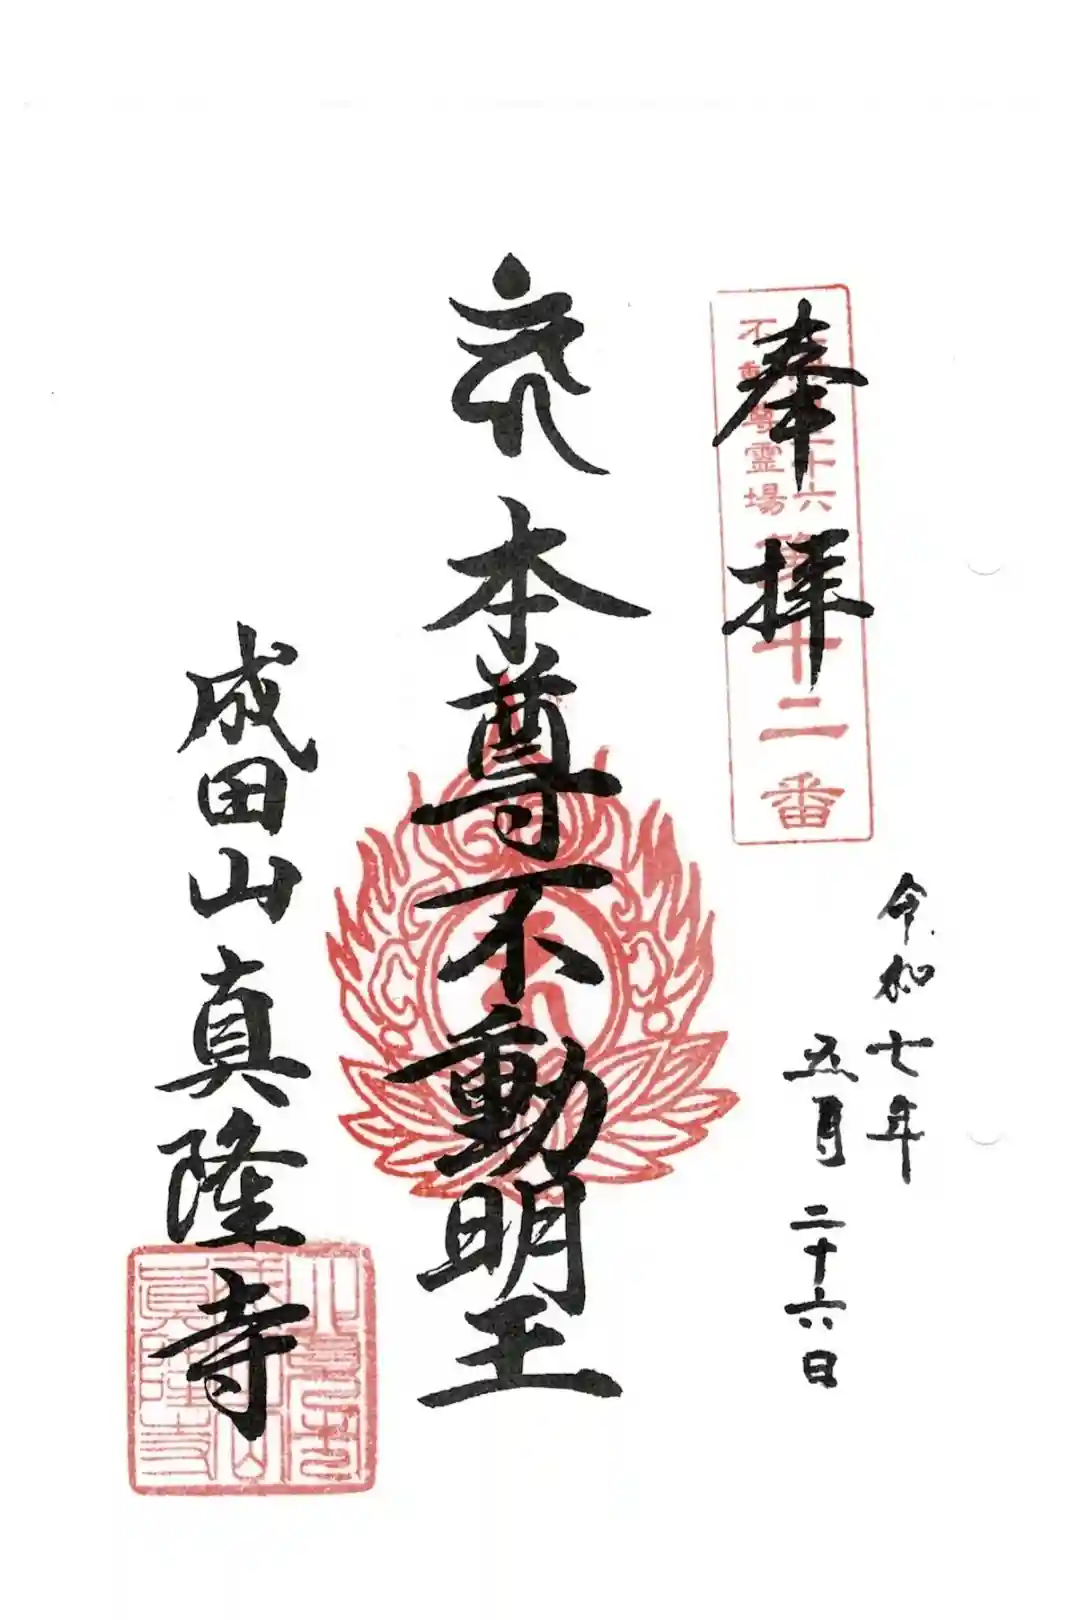 奉拝
三十六
不動尊霊場
第十二番
令和七年
五月二十六日
本尊不動明王
成田山真隆寺